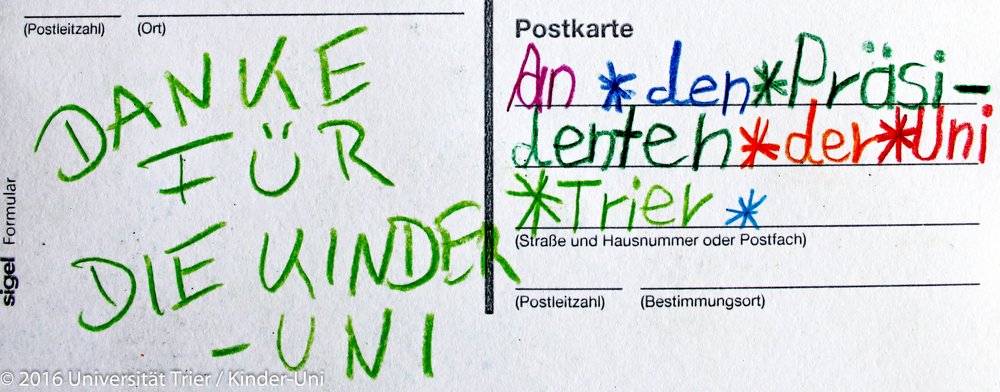 (Postleitzahl) (Ort)
DANKE
FÜR
DIE KINDER
-UNI
sigel Formular
Postkarte
An * den * Präsi-
denten * der * Uni
* Trier *
(Straße und Hausnummer oder Postfach)
(Postleitzahl) (Bestimmungsort)
© 2016 Universität Trier / Kinder-Uni